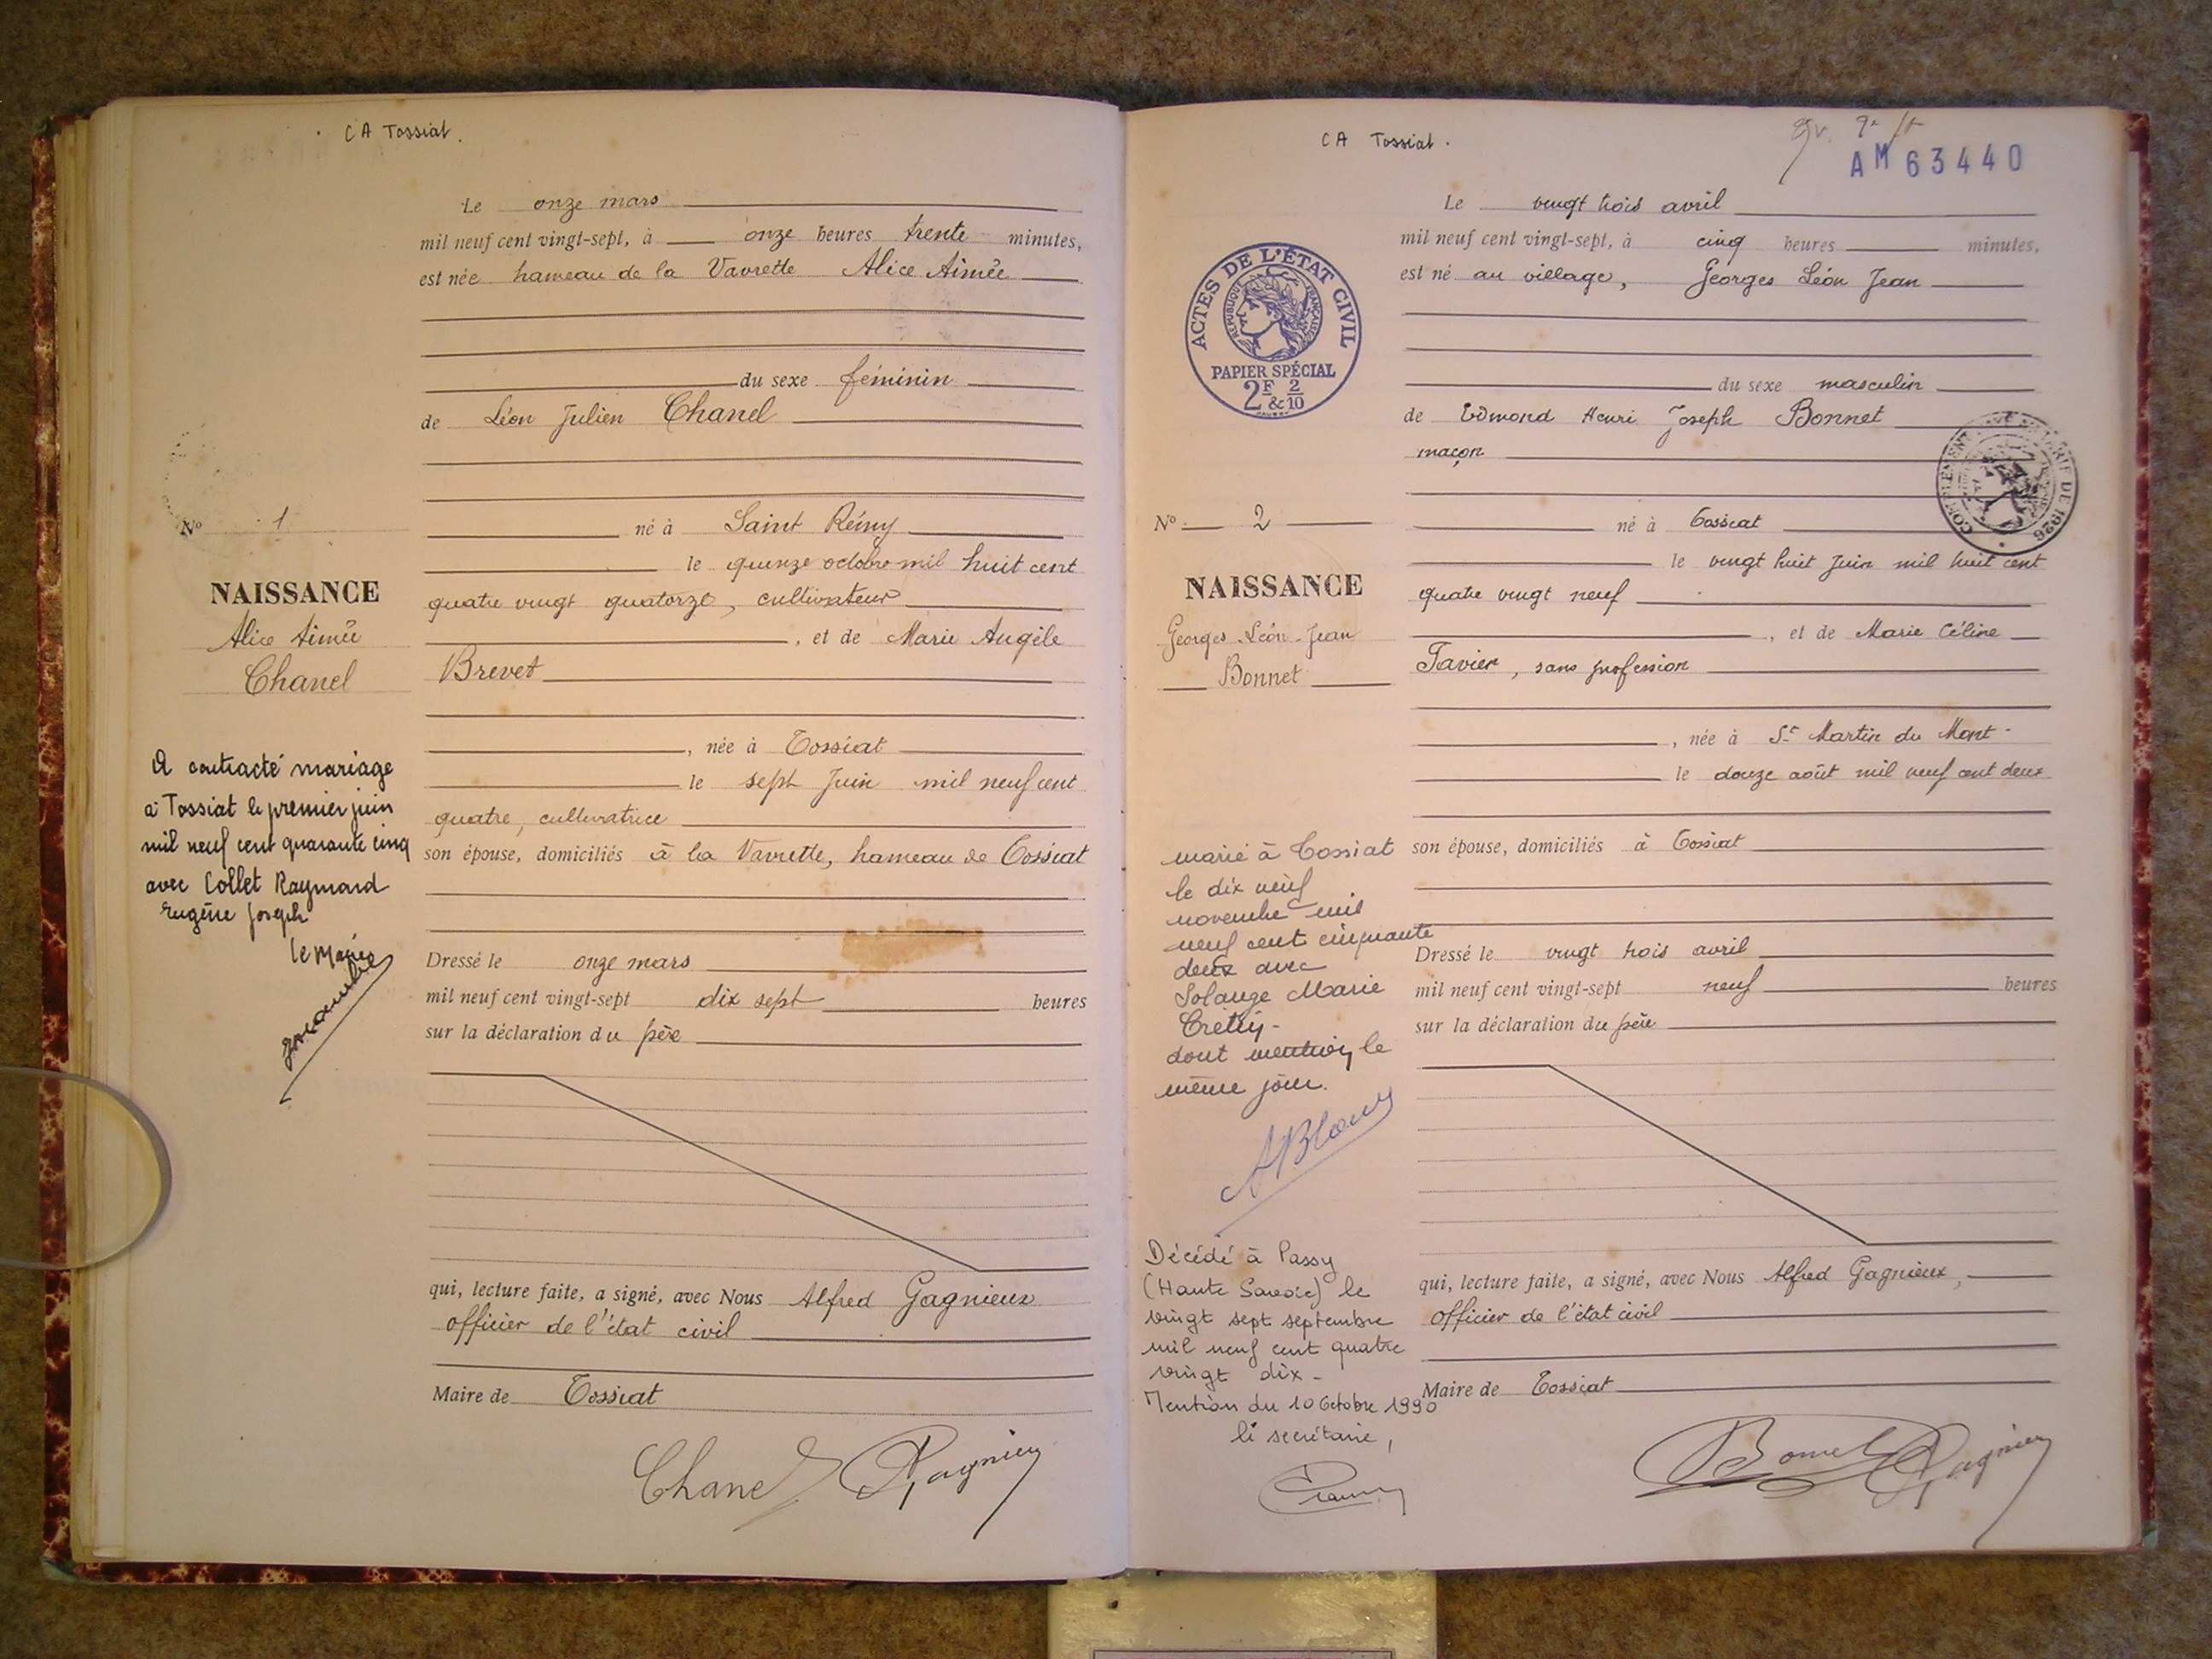 CA Tossiat.
Le onze mars
mil neuf cent vingt-sept, à onze heures trente minutes,
est née hameau de la Vavrette Alice Aimée
du sexe féminin
de Léon Julien Chanel
né à Saint Rémy
le quinze octobre mil huit cent
quatre vingt quatorze, cultivateur
, et de Marie Angèle
Brevet
, née à Tossiat
le sept Juin mil neuf cent
quatre, cultivatrice
son épouse, domiciliés à la Vavrette, hameau de Tossiat
Dressé le onze mars
mil neuf cent vingt-sept dix sept heures
sur la déclaration du père
qui, lecture faite, a signé, avec Nous Alfred Gagnieux
officier de l'état civil
Maire de Tossiat
Chanel Gagnieux
No 1
NAISSANCE
Alice Aimée
Chanel
A contracté mariage
à Tossiat le premier juin
mil neuf cent quarante cinq
avec Collet Raymond
Eugène Joseph
Le Maire
CA Tossiat.
AM 63440
Le vingt trois avril
mil neuf cent vingt-sept, à cinq heures minutes,
est né au village, Georges Léon Jean
du sexe masculin
de Edmond Henri Joseph Bonnet
maçon
né à Tossiat
le vingt huit Juin mil huit cent
quatre vingt neuf
, et de Marie Céline
Tavier, sans profession
, née à St Martin du Mont-
le douze août mil neuf cent deux
son épouse, domiciliés à Tossiat
Dressé le vingt trois avril
mil neuf cent vingt-sept neuf heures
sur la déclaration du père
qui, lecture faite, a signé, avec Nous Alfred Gagnieux,
officier de l'état civil
Maire de Tossiat
Bonnet Gagnieux
ACTES DE L'ÉTAT CIVIL
RÉPUBLIQUE FRANÇAISE
PAPIER SPÉCIAL
2F & 2/10
COMPLÉMENT DE 1926
No 2
NAISSANCE
Georges Léon Jean
Bonnet
marié à Tossiat
le dix neuf
novembre mil
neuf cent cinquante
deux avec
Solange Marie
dont mention le
même jour.
Décédé à Passy
(Haute Savoie) le
vingt sept septembre
mil neuf cent quatre
vingt dix -
Mention du 10 Octobre 1990
le secrétaire,